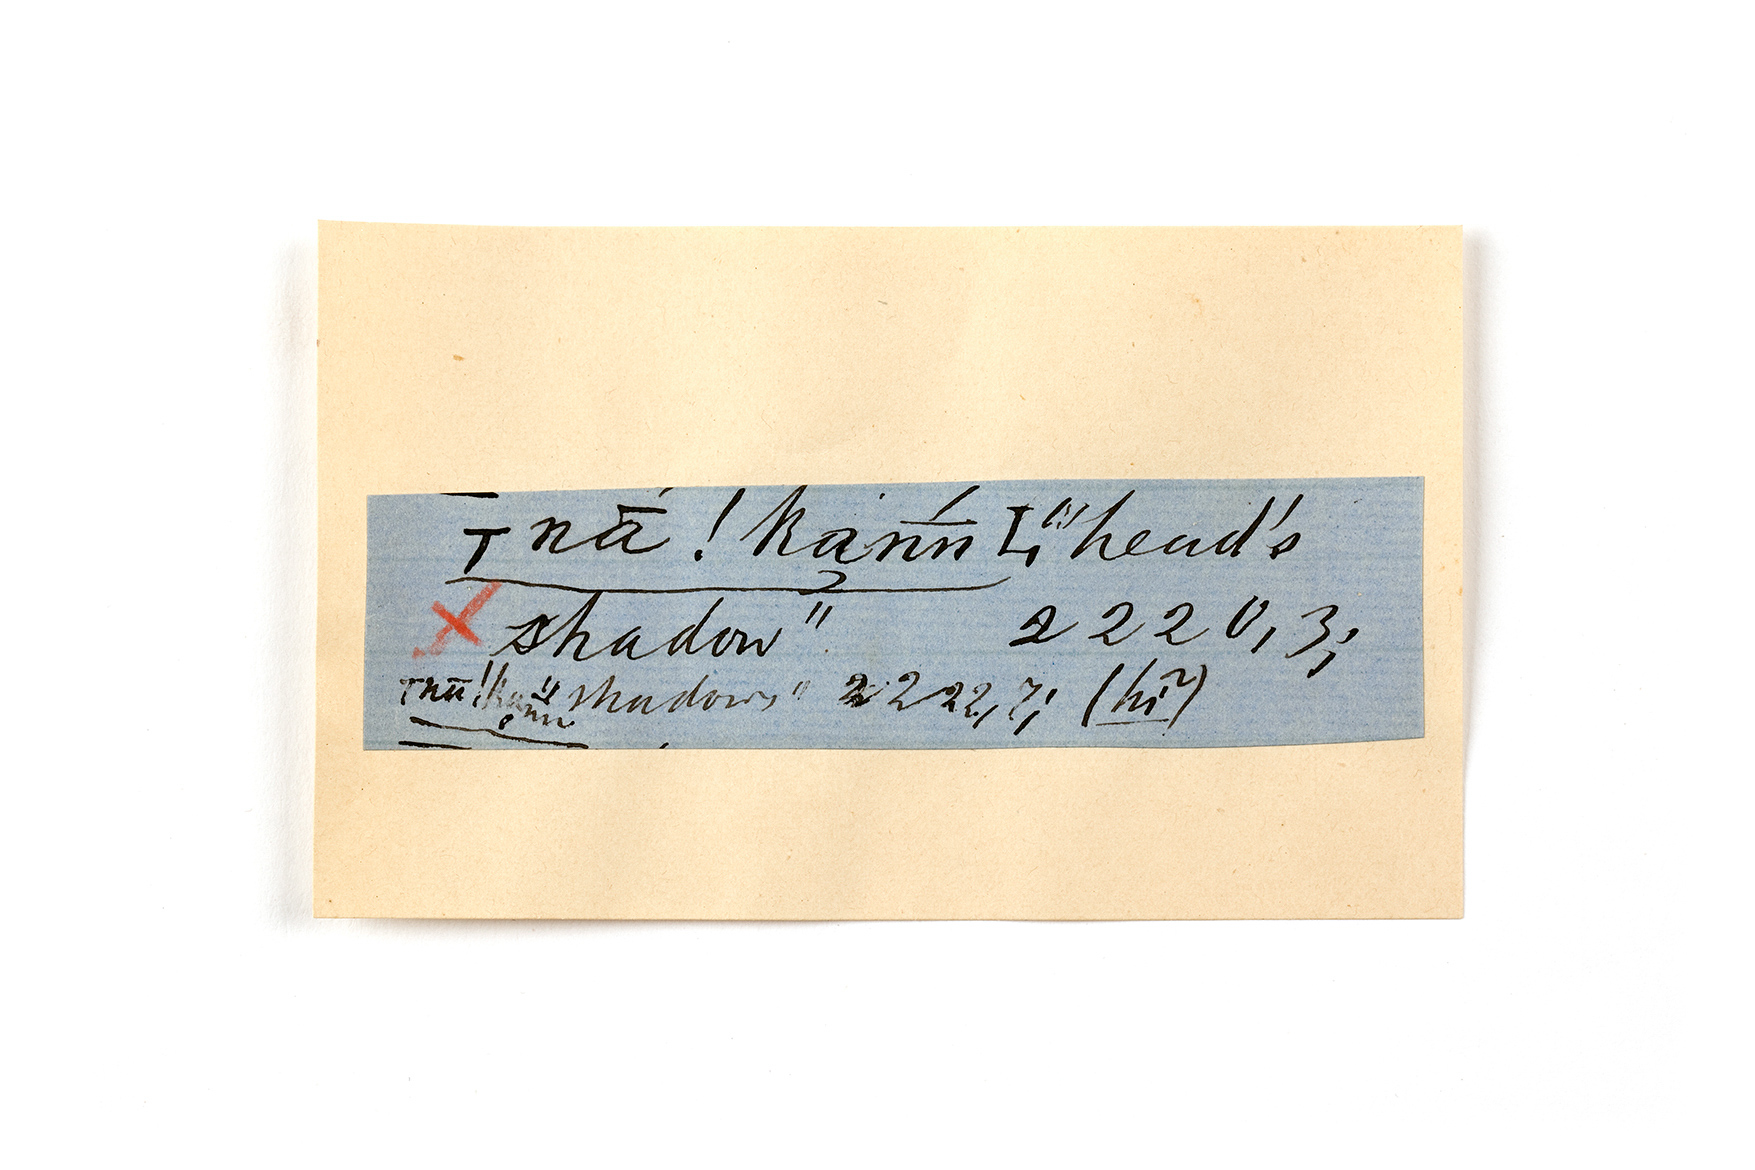 ⊤nā !kann̄ L, "head's
shadow" 2220, 3,
⊤nā !kann̄ "shadows" 2222, 7, (hĩ)